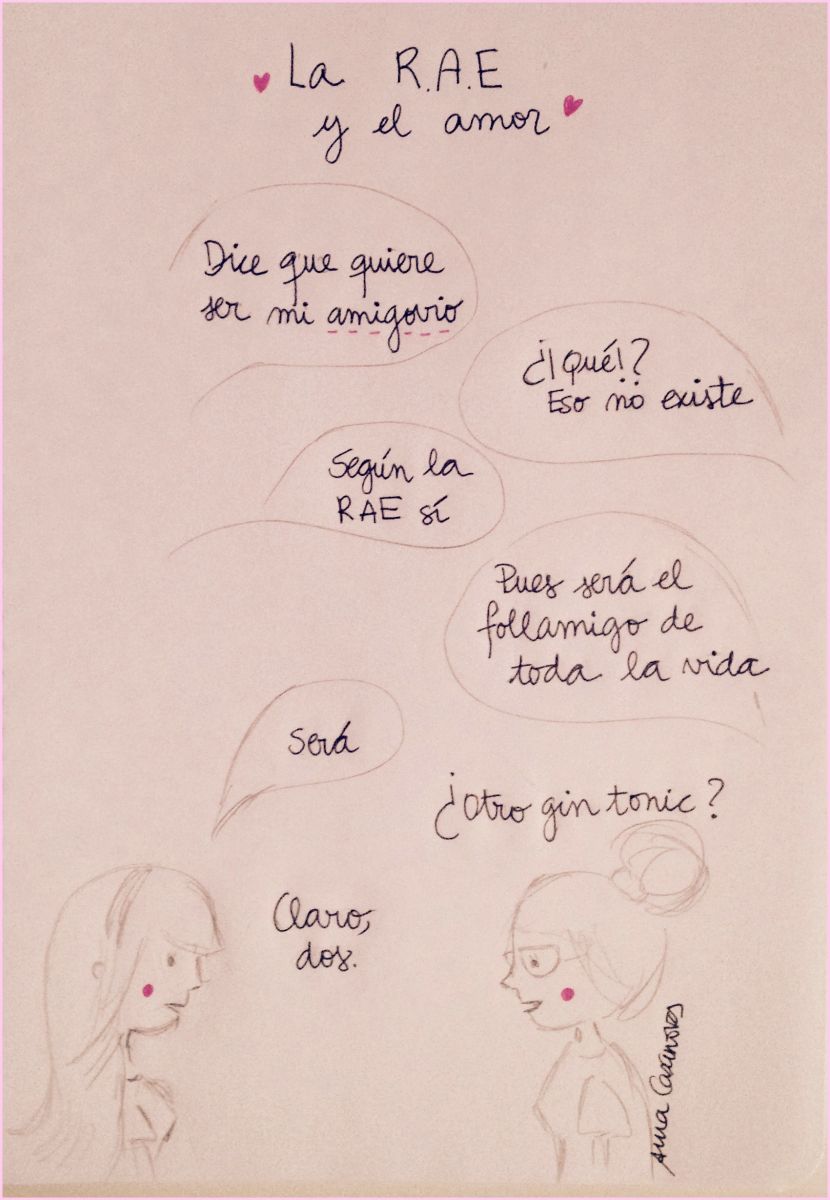 La R.A.E
y el amor
Dice que quiere
ser mi amigovio
¿¡Qué!?
Eso no existe
Según la
RAE sí
Pues será el
follamigo de
toda la vida
Será
¿Otro gin tonic?
Claro,
dos.
Anna Casanovas